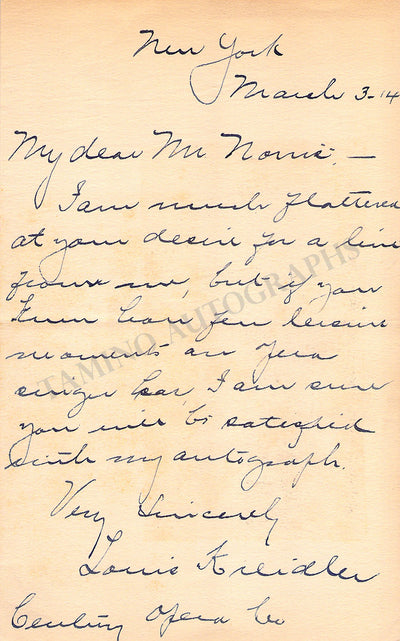 New York
March 3-14
My dear Mr Norris, —
I am much flattered
at your desire for a line
from me, but if you
knew how few leisure
moments an opera
singer has, I am sure
you will be satisfied
with my autograph.
Very Sincerely
Louis Kreidler
Century Opera Co
TAMINO AUTOGRAPHS